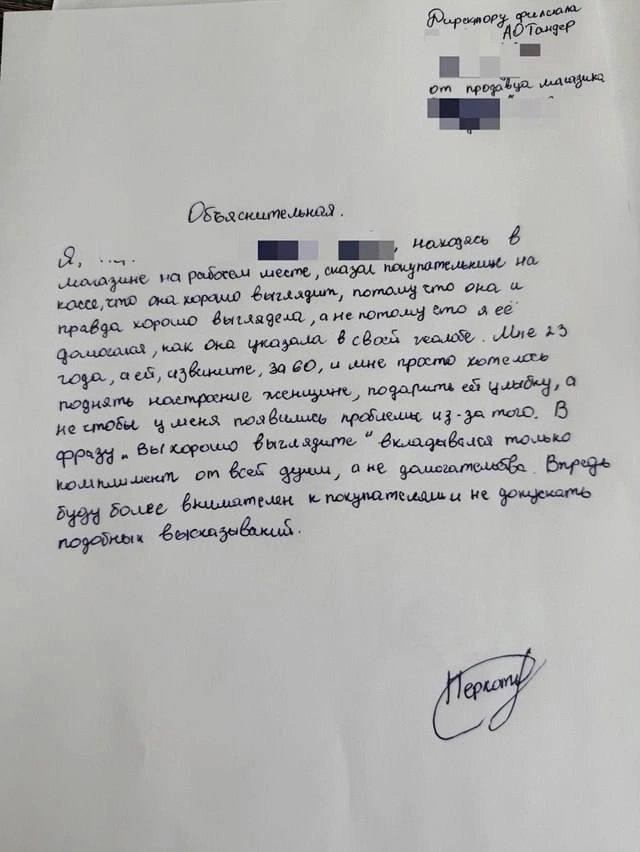 Директору филиала
АО Тандер
от продавца магазина
Объяснительная.
Я, , находясь в
магазине на рабочем месте, сказал покупательнице на
кассе, что она хорошо выглядит, потому что она и
правда хорошо выглядела, а не потому что я её
домогался, как она указала в своей жалобе. Мне 23
года, а ей, извините, за 60, и мне просто хотелось
поднять настроение женщине, подарить ей улыбку, а
не чтобы у меня появились проблемы из-за того. В
фразу „Вы хорошо выглядите“ вкладывался только
комплимент от всей души, а не домогательства. Впредь
буду более внимателен к покупателям и не допускать
подобных высказываний.